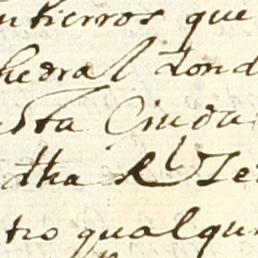 ntierros que
hedral dond
esta Ciuda
dha Rl
tro qualqui